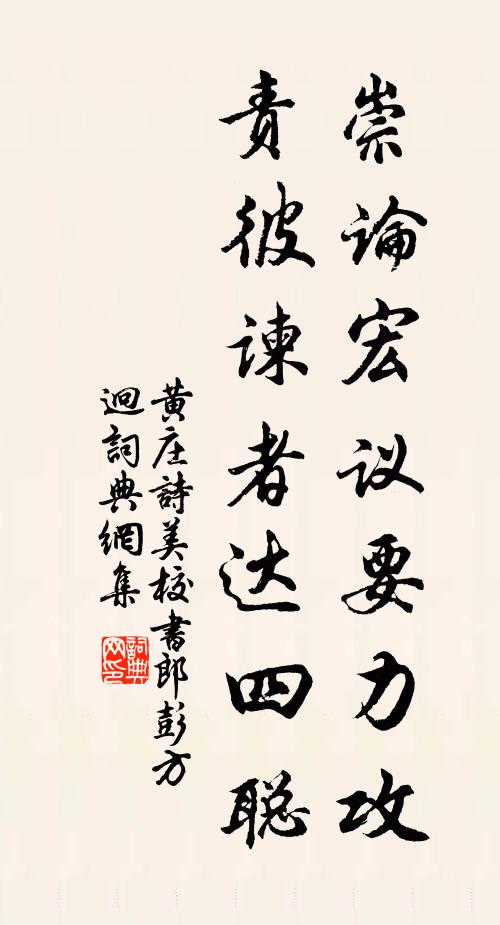 崇論宏议要力攻
责彼谏者达四聪
黄庄詩美校書郎彭方
迥詞典網集
詞典網印